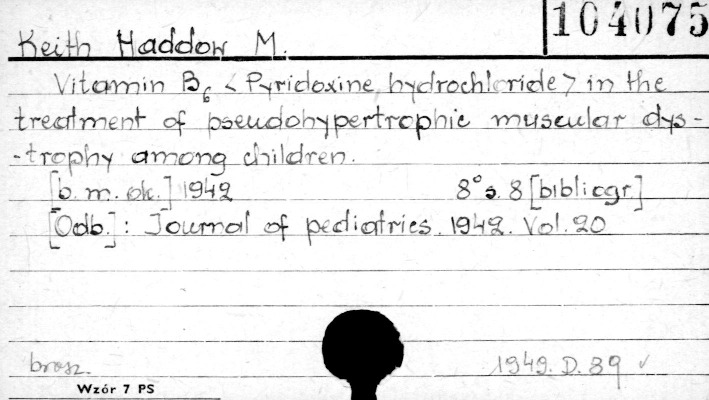 104075
Keith Haddow M.
Vitamin B6 < Pyridoxine hydrochloride > in the
treatment of pseudohypertrophic muscular dys-
-trophy among children.
[b. m. ok.] 1942 8° s. 8 [bibliogr.]
[Odb.]: Journal of pediatrics. 1942. Vol. 20
brosz. 1949. D. 89 ✓
Wzór 7 PS